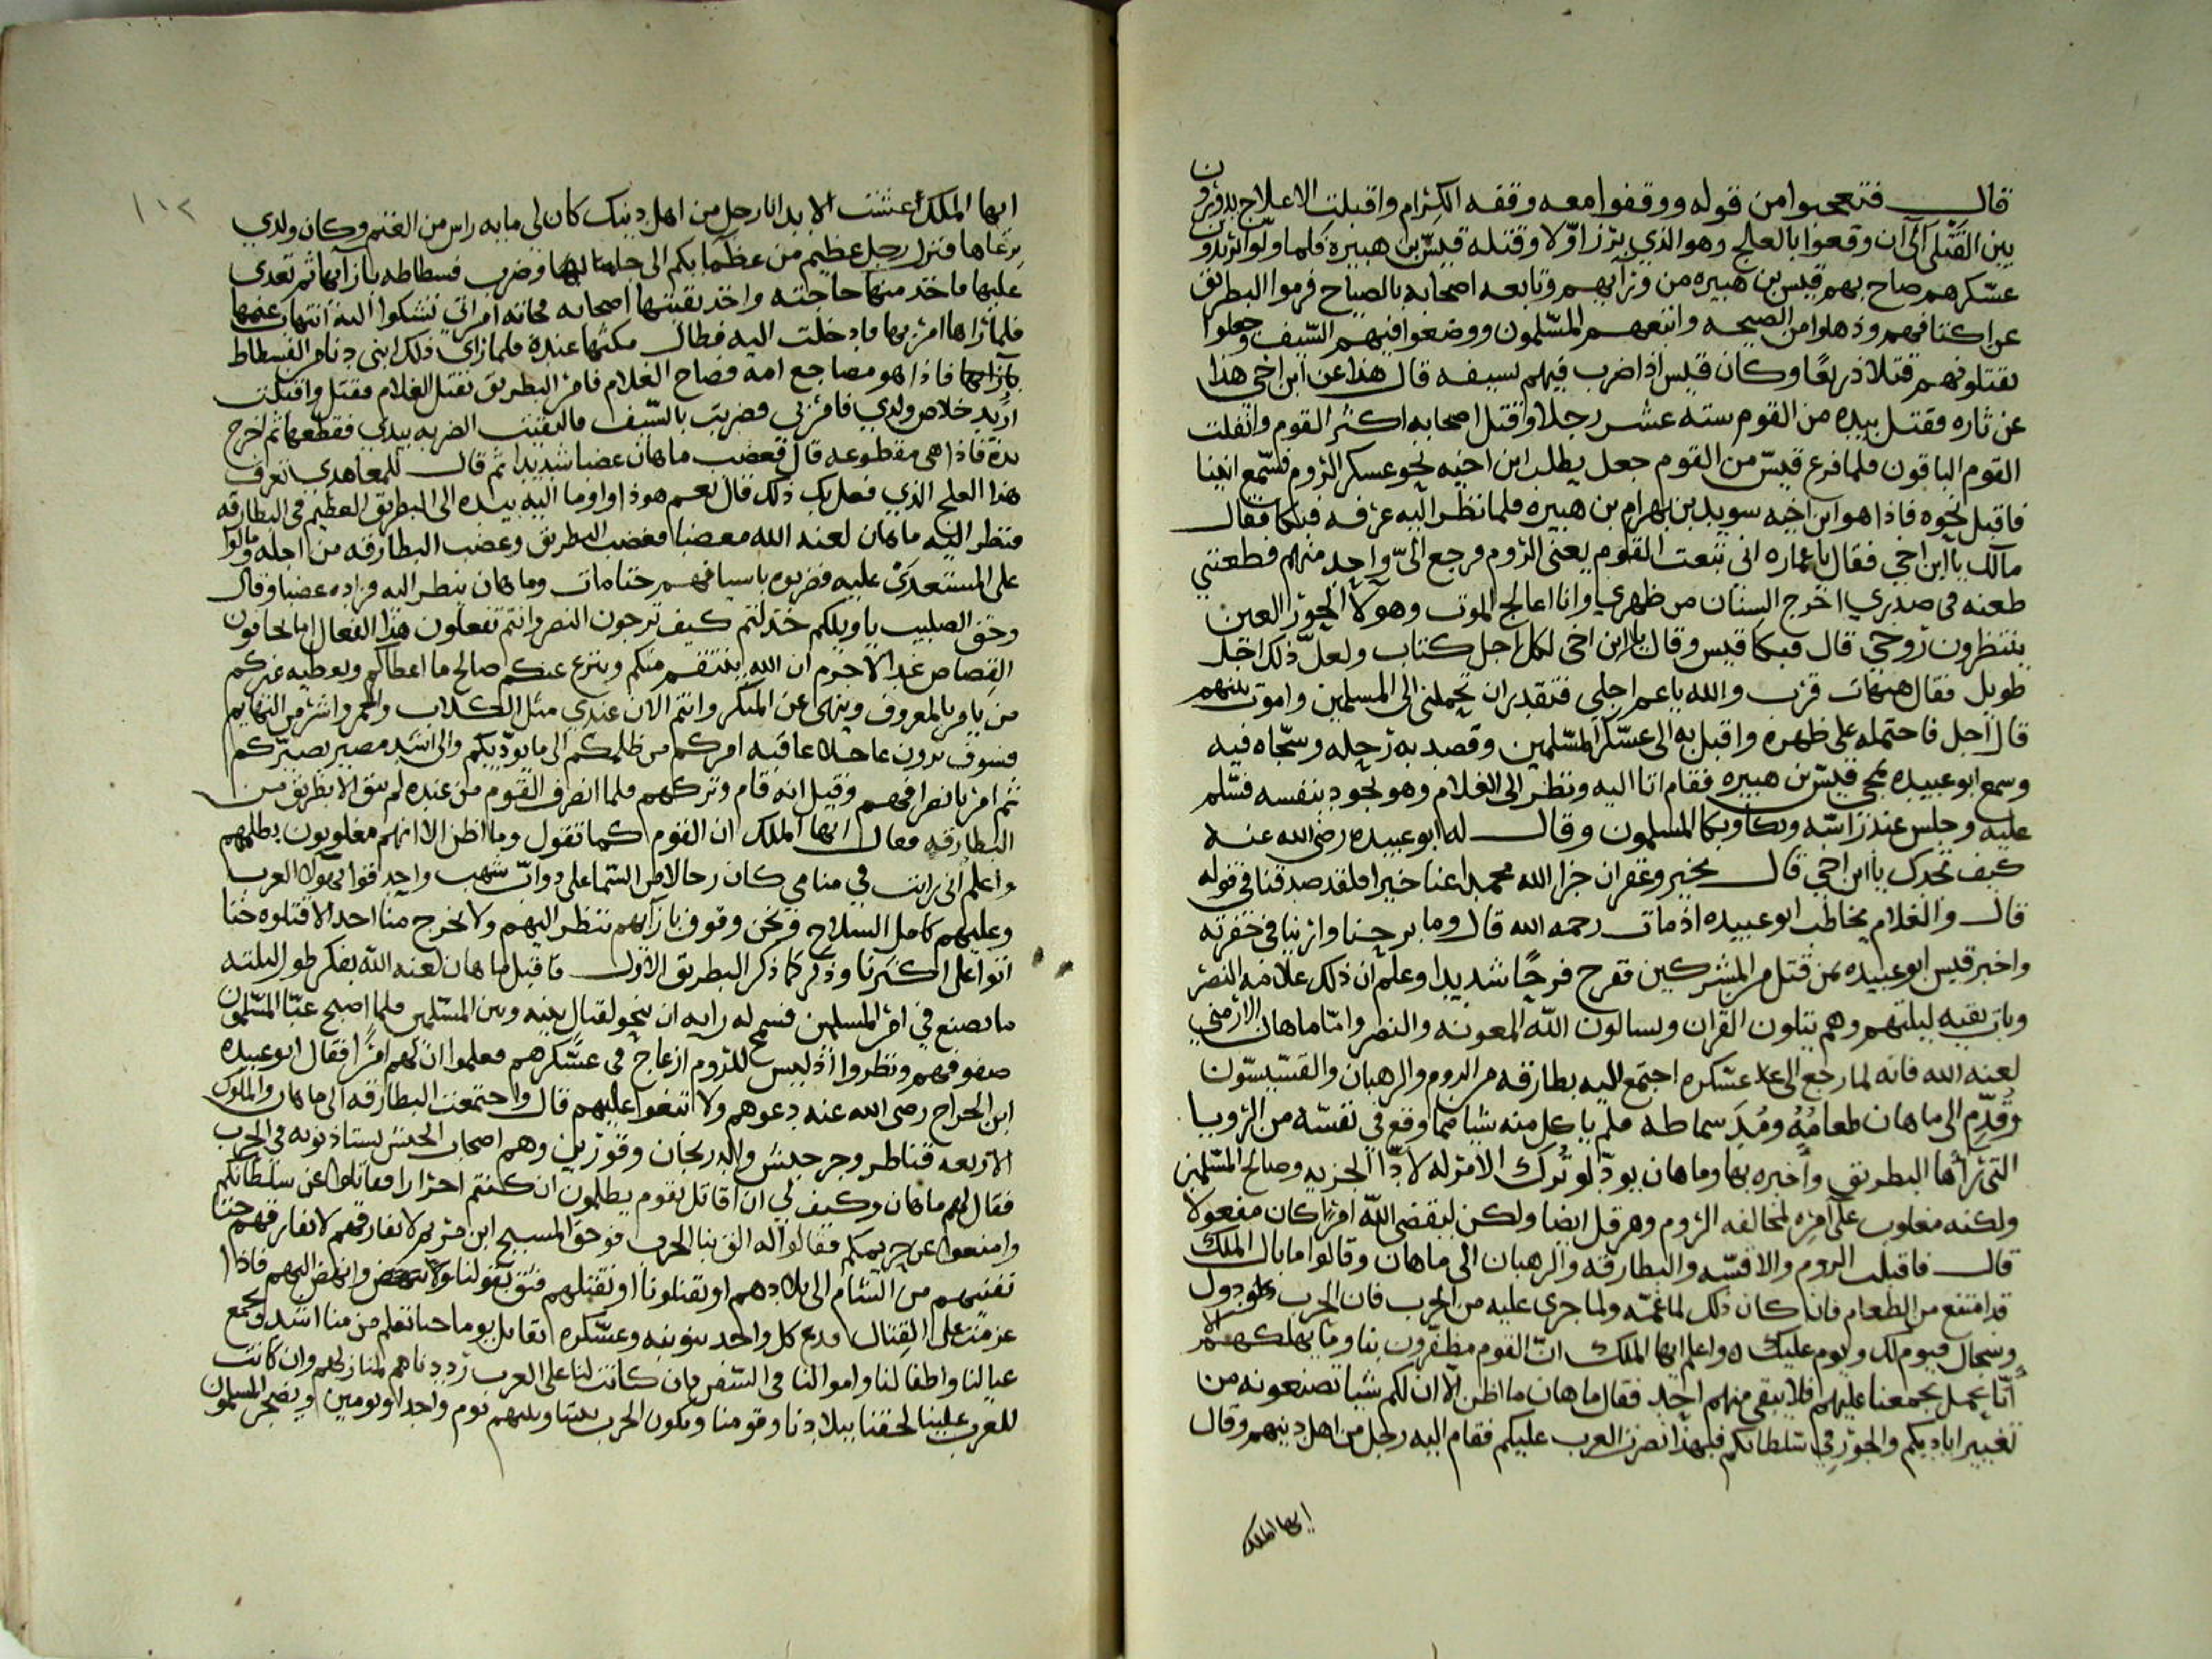 قال فتعجبوا من قوله ووقفوا معه وقفه الكرام واقبلت الاعلاج يدورون
بين القتلى الى ان وقعوا بالعلج وهو الذي برز اولا وقتله قيس بن هبيره فلما ولوا يريدون
عسكرهم صاح بهم قيس بن هبيره من ورآيهم وتابعه اصحابه بالصياح فرموا البطريق
عن اكتافهم وذهلوا من الصيحه واتبعهم المسلمون ووضعوا فيهم السيف وجعلوا
يقتلونهم قتلا ذريعا وكان قيس اذا ضرب فيهم بسيفه قال هذا عن ابن اخي هذا
عن ثاره فقتل بيده من القوم سته عشر رجلا وقتل اصحابه اكثر القوم وانفلت
القوم الباقون فلما فرغ قيس من القوم جعل يطلب ابن اخيه نحو عسكر الروم فسمع انينا
فاقبل نحوه فاذا هو ابن اخيه سويد بن بهرام بن هبيره فلما نظر اليه عرفه فبكا فقال
مالك يا ابن اخي فقال يا عماره اني تبعت القوم يعنى الروم فرجع الىّ واحد منهم فطعنني
طعنه في صدري اخرج السنان من ظهري وانا اعالج الموت وهولا الحور العين
ينتظرون روحي قال فبكا قيس وقال يا ابن اخى لكل اجل كتاب ولعل ذلك اجل
طويل فقال هيهات قرب والله يا عم اجلي فتقدر ان تحملنى الى المسلمين واموت بينهم
قال اجل فاحتمله على ظهره واقبل به الى عسكر المسلمين وقصد به رحله وسجاه فيه
وسمع ابو عبيده بمجي قيس بن هبيره فقام اتا اليه ونظر الى الغلام وهو يجود بنفسه فسلم
عليه وجلس عند راسه وبكا وبكا المسلمون وقال له ابو عبيده رضى الله عنه
كيف تجدك يا ابن اخي قال بخير وغفران جزا الله محمدا عنا خيرا فلقد صدقنا في قوله
قال والغلام يخاطب ابو عبيده اذ مات رحمه الله قال وما برحنا واريناه في حفرته
واخبر قيس ابو عبيده بمن قتل من المشركين ففرح فرحا شديدا وعلم ان ذلك علامه النصر
وبات بقيه ليلتهم وهم يتلون القران ويسالون الله المعونه والنصر واما ماهان الارمني
لعنه الله فانه لما رجع الى عسكره اجتمع اليه بطارقه من الروم والرهبان والقسيسون
وقُدّم الى ماهان طعامُهُ ومُدّ سماطه فلم ياكل منه شيا مما وقع في نفسه من الرويا
التى رأها البطريق وأخبره بها وماهان يود لو تُرك الامر له لادّا الجزيه وصالح المسلمين
ولكنه مغلوب على امره لمخالفه الروم وهرقل ايضا ولكن ليقضى الله امرًا كان مفعولا
قال فاقبلت الروم والاقسه والبطارقه والرهبان الى ماهان وقالوا ما بال الملك
قد امتنع من الطعام فانه كان ذلك لما غمّه ولما جرى عليه من الحرب فان الحرب دول
وسجال فيوم لك ويوم عليك واعلم ايها الملك ان القوم مظفرون بنا وما يهلكهم الا
أنّا نحمل بجمعنا عليهم فلا يبقى منهم احد فقال ماهان ما اظن الا ان لكم شيا تصنعونه من
تغيير اياديكم والجور في سلطانكم فبهذا نصرت العرب عليكم فقام اليه رجل من اهل دينهم وقال
ايها الملك
١٠٢
ايها الملك عشت الابد انا رجل من اهل دينك كان لى مايه راس من الغنم وكان ولدي
يرعاها فنزل رجل عظيم من عظمايكم الى جانبها وضرب فسطاطه بازآيها ثم تعدى
عليها فاخذ منها حاجته واخذ بقيتها اصحابه فجاته امراتي تشكوا اليه انتهاب غنمها
فلما رأها امر بها فادخلت اليه فطال مكثها عنده فلما راى ذلك ابنى دنا من الفسطاط
فاذا هو مضاجع امه فصاح الغلام فامر البطريق بقتل الغلام فقتل واقبلت
اريد خلاص ولدي فامر بي فضربت بالسيف فالتقيت الضربه بيدي فقطعها ثم اخرج
يده فاذا هى مقطوعه قال فغضب ماهان غضبا شديدا ثم قال للمعاهدي تعرف
هذا العلج الذي فعل بك ذلك قال نعم هو ذا واوما اليه بيده الى البطريق العظيم في البطارقه
فنظر اليه ماهان لعنه الله مغضبا فغضب البطريق وغضب البطارقه من اجله ومالوا
على المستعدي عليه فضربوه باسيافهم حتا مات وماهان ينظر اليه فزاده غضبا وقال
وحق الصليب يا ويلكم خذلتم كيف ترجون النصر وانتم تفعلون هذا الفعال اما تخافون
القصاص غدا لا جرم ان الله ينتقم منكم وينزع عنكم صالح ما اعطاكم ويعطيه غيركم
من يامر بالمعروف وينهى عن المنكر وانتم الان عندي مثل الكلاب والحمر واشر من البهايم
فسوف ترون عاجلا عاقبه امركم من ظلمكم الى ما يوديكم والى اشد مصير يصيركم
ثم امر بانصرافهم وقيل انه قام وتركهم فلما انصرف القوم من عنده لم يبق الا بطريق من
البطارقه فقال ايها الملك ان القوم كما تقول وما اظن الا انهم مغلوبون بظلمهم
واعلم انى رايت في منامي كان رجالا من السما على دواب شهب واحدقوا بهولا العرب
وعليهم كامل السلاح ونحن وقوف بازآيهم ننظر اليهم ولا يخرج منا احد الا قتلوه حتا
اتوا على اكثرنا وذكر كما ذكر البطريق الاول فاقبل ماهان لعنه الله يفكر طول ليلته
ما يصنع في امر المسلمين فسمح له رايه ان ينجو لقتال بينه وبين المسلمين فلما اصبح عبّا المسلمون
صفوفهم ونظروا اذ ليس للروم ازعاج فى عسكرهم فعلموا ان لهم امرا فقال ابو عبيده
ابن الجراح رضى الله عنه دعوهم ولا تبغوا عليهم قال واجتمعت البطارقه الى ماهان والملوك
الاربعه قناطر وجرجيس والدريجان وقورين وهم اصحاب الجيش يستاذنونه فى الحرب
فقال لهم ماهان وكيف لي ان اقاتل بقوم يظلمون ان كنتم احرارا فقاتلوا عن سلطانكم
وامنعوا عن حريمكم فقالوا له الق بنا الحرب فوحق المسيح ابن مريم لا نفارقهم حتا
ننفيهم من الشام الى بلادهم او يقتلونا او نقتلهم فثق بقولنا وانهض اليهم فاذا
عزمت على القتال فدع كل واحد بنوبته وعسكره يقاتل يوما حتا تعلم من منا اشد ونجمع
عيالنا واطفالنا واموالنا فى السفن فان كانت لنا على العرب رددناهم لمنازلهم وان كانت
للعرب علينا لحقنا ببلادنا وقومنا ويكون الحرب بيننا وبينهم يوم واحد او يومين ويضجر المسلمون